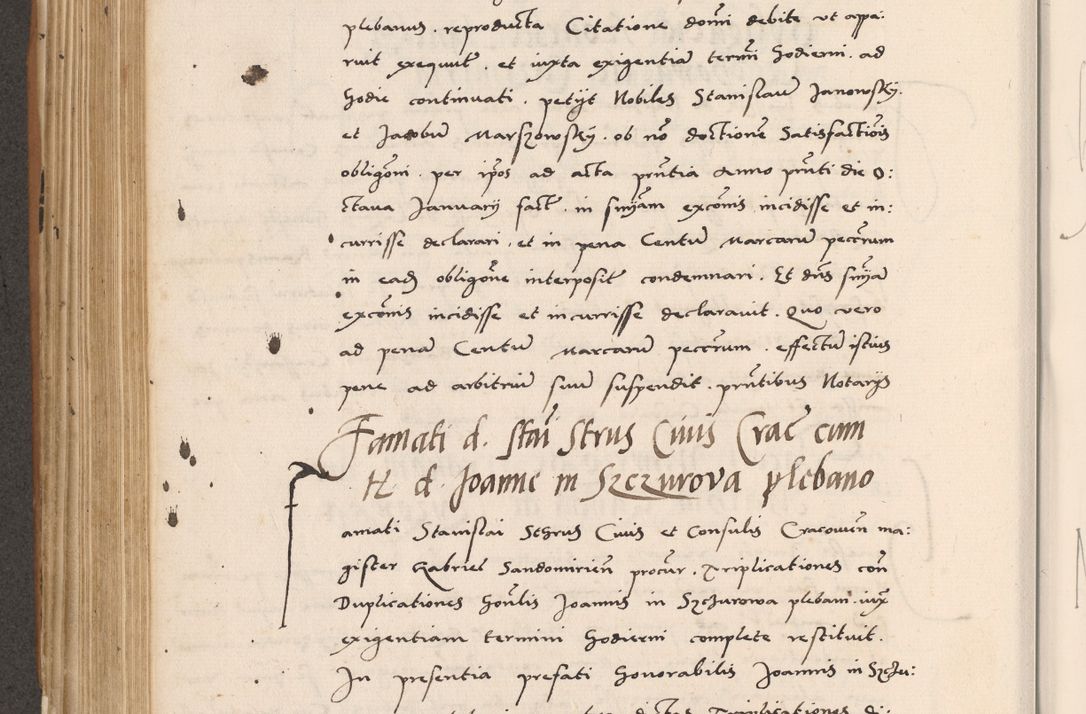 plebanus . reproducta Citatione domi debite ut appa:
ruit exequut̃ . et iuxta exigentiã termi hodierni . ad
hodie continuati . petyt Nobiles Stanislaũ Janowsky .
et Jacobũ Marszowsky . ob nõ doctionẽ Satisfactiõis
obligõni . per ip̃os ad acta pñtia Anno pñti die O:
ctaua January fact̃ . in sniam excõnis incidisse et in:
currisse declarari . et in pena Centũ Marcarũ peccrum
in eadẽ obligõne interposit̃ condemnari . Et dñs sniã
excõnis incidisse et incurrisse declarauit . Quo vero
ad penã Centũ Marcarũ peccrum . effectũ istius
pene ad arbitriũ suũ suspendit . pñtibus Notarys
Famati d. Stañi Strus Ciuis Crac̃ cum
H d. Joanne in Szczurova plebano
amati Stanislai Sthrus Ciuis et Consulis Cracouieñ ma:
gister Gabriel Sandomirieñ procur̃ . Triplicationes coñ
Duplicationes honlis Joannis in Szczurowa plebani . iux̃
exigentiam termini hodierni complete restituit .
In presentia prefati honorabilis Joannis in Szczu: